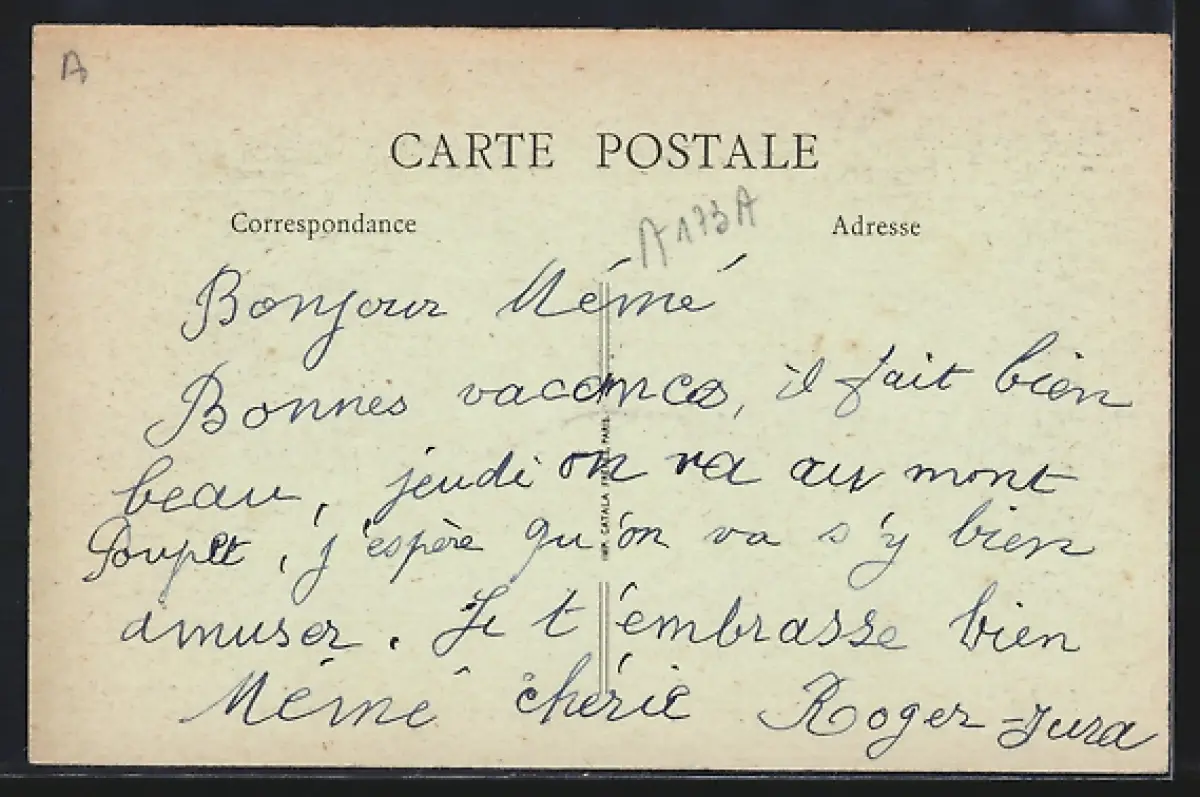 A
CARTE POSTALE
Correspondance
A173A
Adresse
Bonjour Mémé
Bonnes vacances, il fait bien
beau, jeudi on va au mont
Poupet, j'espère qu'on va s'y bien
amuser. Je t'embrasse bien
Mémé chérie Roger-Jura
IMP. CATALA FRERES, PARIS